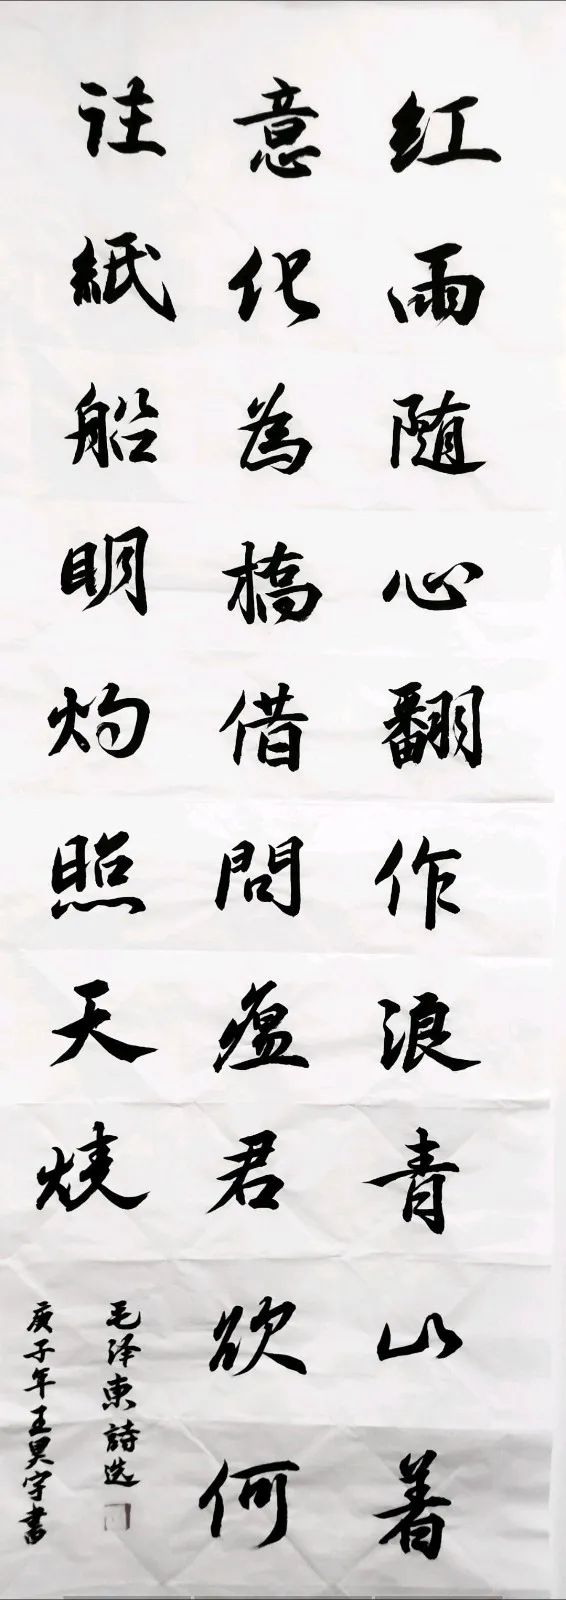 红雨随心翻作浪青山着
意化為橋借問瘟君欲何
往紙船明灼照天燒
毛泽東詩选
庚子年王昊宇書